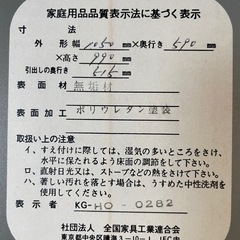 家庭用品品質表示法に基づく表示
寸法
外形 幅 1050 ×奥行き 590 mm
×高さ 990 mm
引出しの奥行き 515 mm
表面材 無垢材
表面加工 ポリウレタン塗装
取扱い上の注意
イ、すえ付けに際しては、湿気の多いところをさけ、
水平に保たれるよう床面の調節をして下さい。
ロ、直射日光又は、ストーブなどの熱をさけて下さい。
ハ、著しい汚れを落とす場合は、うすめた中性洗剤を
使用して下さい。
表示者 KG-HO-0282
社団法人 全国家具工業連合会
東京都中央区晴海3-10-1 JFC内